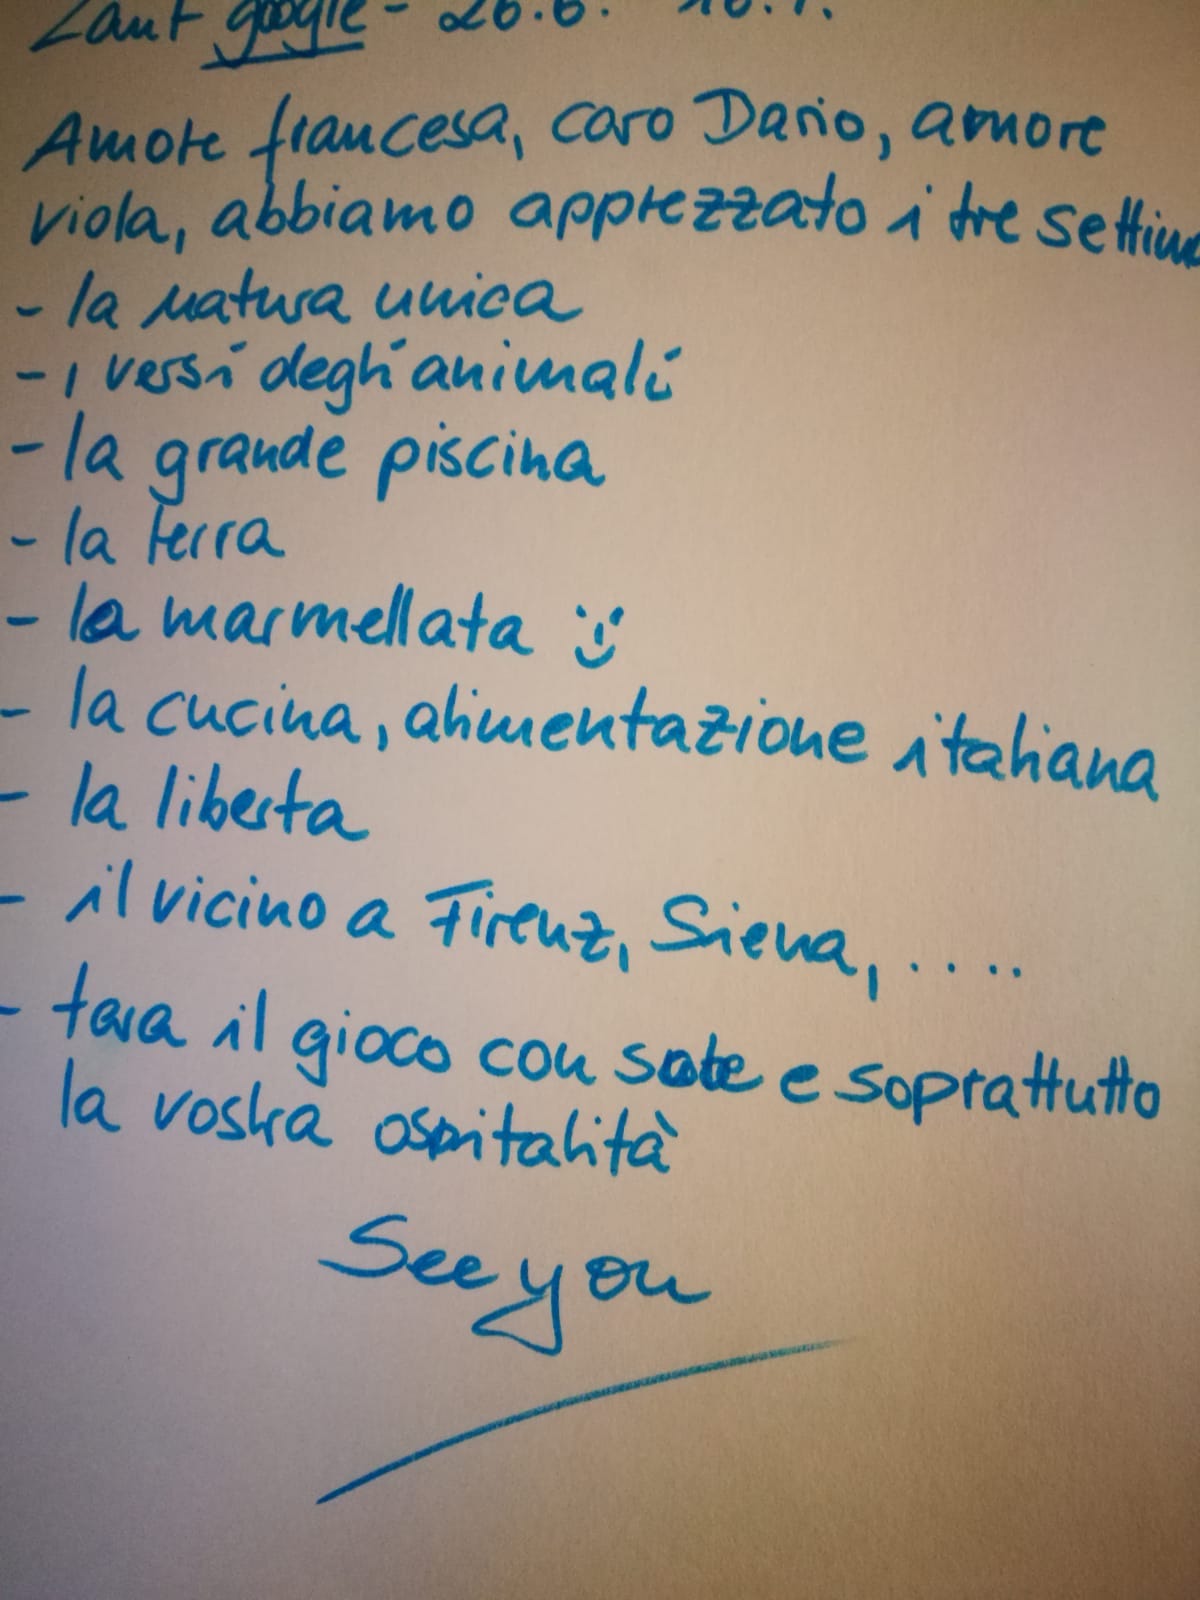 Laut google - 26.6. 
Amore francesa, caro Dario, amore
viola, abbiamo apprezzato i tre settim
- la natura unica
- i versi degli animali
- la grande piscina
- la terra
- la marmellata
- la cucina, alimentazione italiana
- la liberta
- il vicino a Firenz, Siena, .....
- tara il gioco con sate e soprattutto
la vostra ospitalità
See you